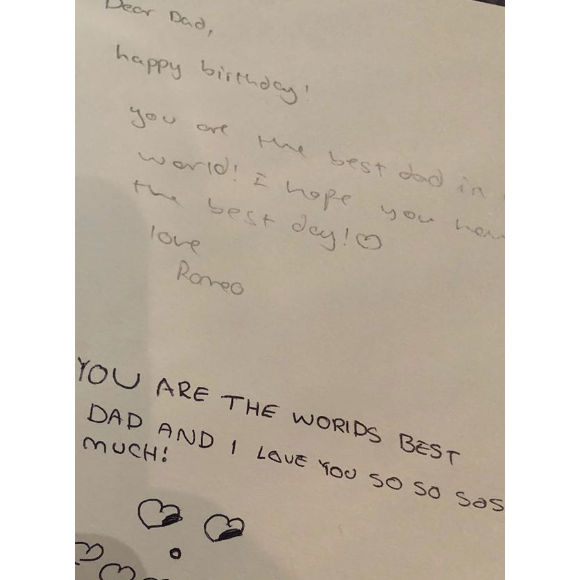 Dear Dad,
happy birthday!
you are the best dad in
world! I hope you
the best day!
love
Romeo
YOU ARE THE WORLDS BEST
DAD AND I LOVE YOU SO SO
MUCH!